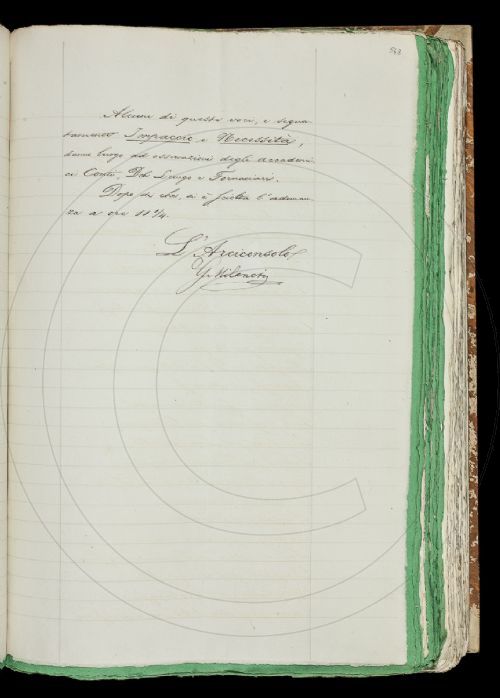 Alcune di queste voci, e segna-
tamente Impaccio e Necessità,
danno luogo ad osservazioni degli accademi-
ci Conti, Del Lungo e Fornaciari.
Dopo di che, si è sciolta l'adunan-
za a ore 11 1/4.
L'Arciconsolo